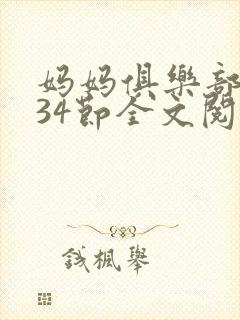 妈妈俱樂部
34節全文閱
錢楓舉